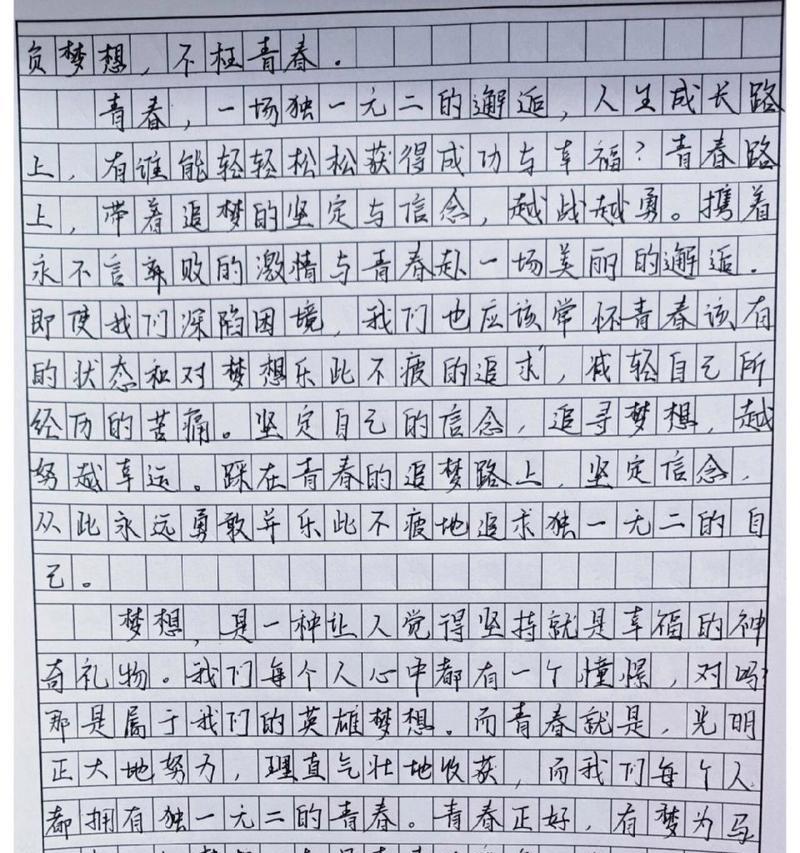 负梦想，不枉青春。
青春，一场独一无二的邂逅，人生成长路
上，有谁能轻轻松松获得成功与幸福？青春路
上，带着追梦的坚定与信念，越战越勇。携着
永不言弃败的激情与青春赴一场美丽的邂逅．
即使我们深陷困境，我们也应该常怀青春该有
的状态和对梦想乐此不疲的追求，减轻自己所
经历的苦痛。坚定自己的信念，追寻梦想，越
努越幸运。踩在青春的追梦路上，坚定信念，
从此永远勇敢并乐此不疲地追求独一无二的自
己。
梦想，是一种让人觉得坚持就是幸福的神
奇礼物。我们每个人心中都有一个憧憬，对吗？
那是属于我们的英雄梦想。而青春就是，光明
正大地努力，理直气壮地收获，而我们每个人
都拥有独一无二的青春。青春正好，有梦为马